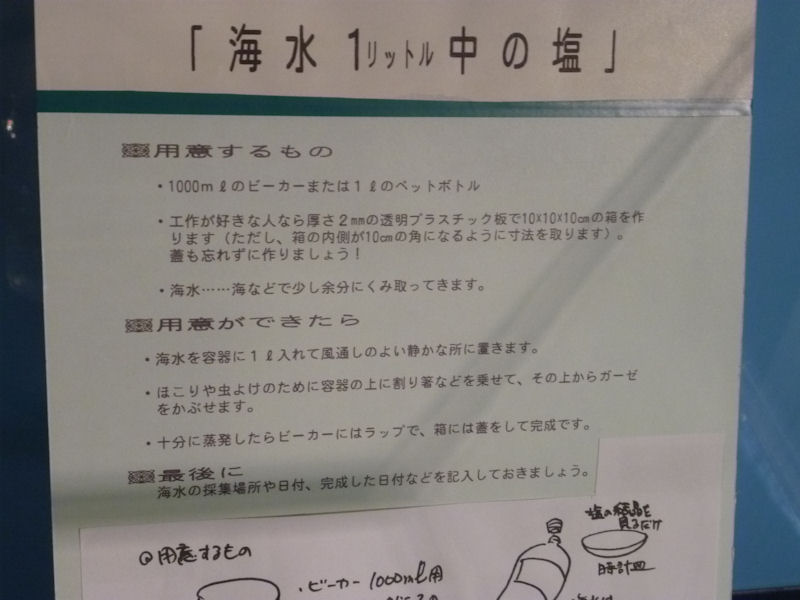 「海水1リットル中の塩」
用意するもの
・1000mℓのビーカーまたは1ℓのペットボトル
・工作が好きな人なら厚さ2㎜の透明プラスチック板で10×10×10㎝の箱を作
ります（ただし、箱の内側が10㎝の角になるように寸法を取ります）。
蓋も忘れずに作りましょう！
・海水……海などで少し余分にくみ取ってきます。
用意ができたら
・海水を容器に1ℓ入れて風通しのよい静かな所に置きます。
・ほこりや虫よけのために容器の上に割り箸などを乗せて、その上からガーゼ
をかぶせます。
・十分に蒸発したらビーカーにはラップで、箱には蓋をして完成です。
最後に
海水の採集場所や日付、完成した日付などを記入しておきましょう。
塩の結晶を
見るだけ
時計皿
用意するもの
・ビーカー 1000mℓ用